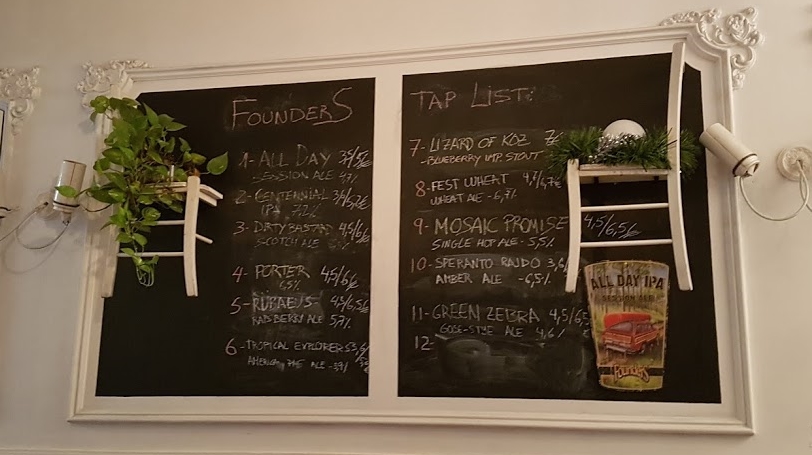 FOUNDERS
1-ALL DAY
SESSION ALE
2-CENTENNIAL
IPA 7,2%
3-DIRTY BASTARD 4,5/6/
SCOTCH ALE
4-PORTER 4,5/6/
6,5%
5-RUBAEUS
RASPBERRY ALE 5,7%
6-TROPICAL EXPLORER
TAP LIST:
7-LIZARD OF KOZ
-BLUEBERRY IMP. STOUT
8-FEST WHEAT
WHEAT ALE -6,7%
9-MOSAIC PROMISE 4,5/6,5/€
SINGLE HOP ALE - 5,5%
10-SPERANTO RAUDO
AMBER ALE
11-GREEN ZEBRA 4,5/6,5
GOSE-STYLE ALE 4,6
12-
ALL DAY IPA
SESSION ALE
Founders